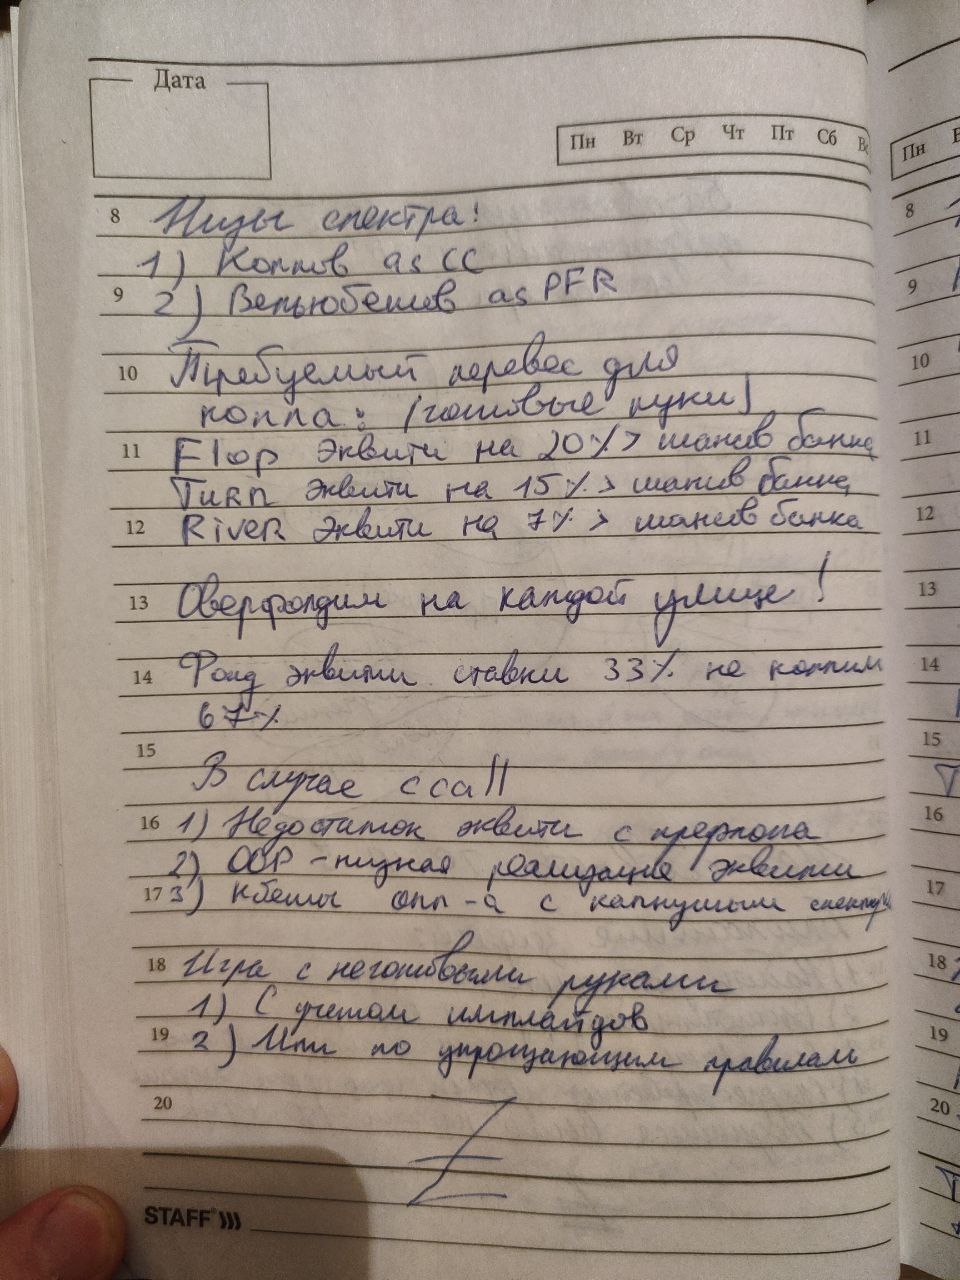 Дата
Пн Вт Ср Чт Пт Сб Вс
Пн
8 Низы спектра:
1) Коллов as CC
9 2) Вельюбетов as PFR
10 Требуемый перевес для
колла: (готовые руки)
11 Flop эквити на 20% > шансов банка
Turn эквити на 15% > шансов банка
12 River эквити на 7% > шансов банка
13 Оверфолдим на каждой улице!
14 Фолд эквити ставки 33% не коллим
67%
15
В случае ccall
16 1) Недостаток эквити с префлопа
2) OOP - низкая реализация эквити
17 3) кбеты опп-а с капнутым спектром
18 Игра с неготовыми руками
1) С учетом имплайдов
19 2) Или по упрощающим правилам
20
STAFF
8
9
10
11
12
13
14
15
16
17
18
19
20